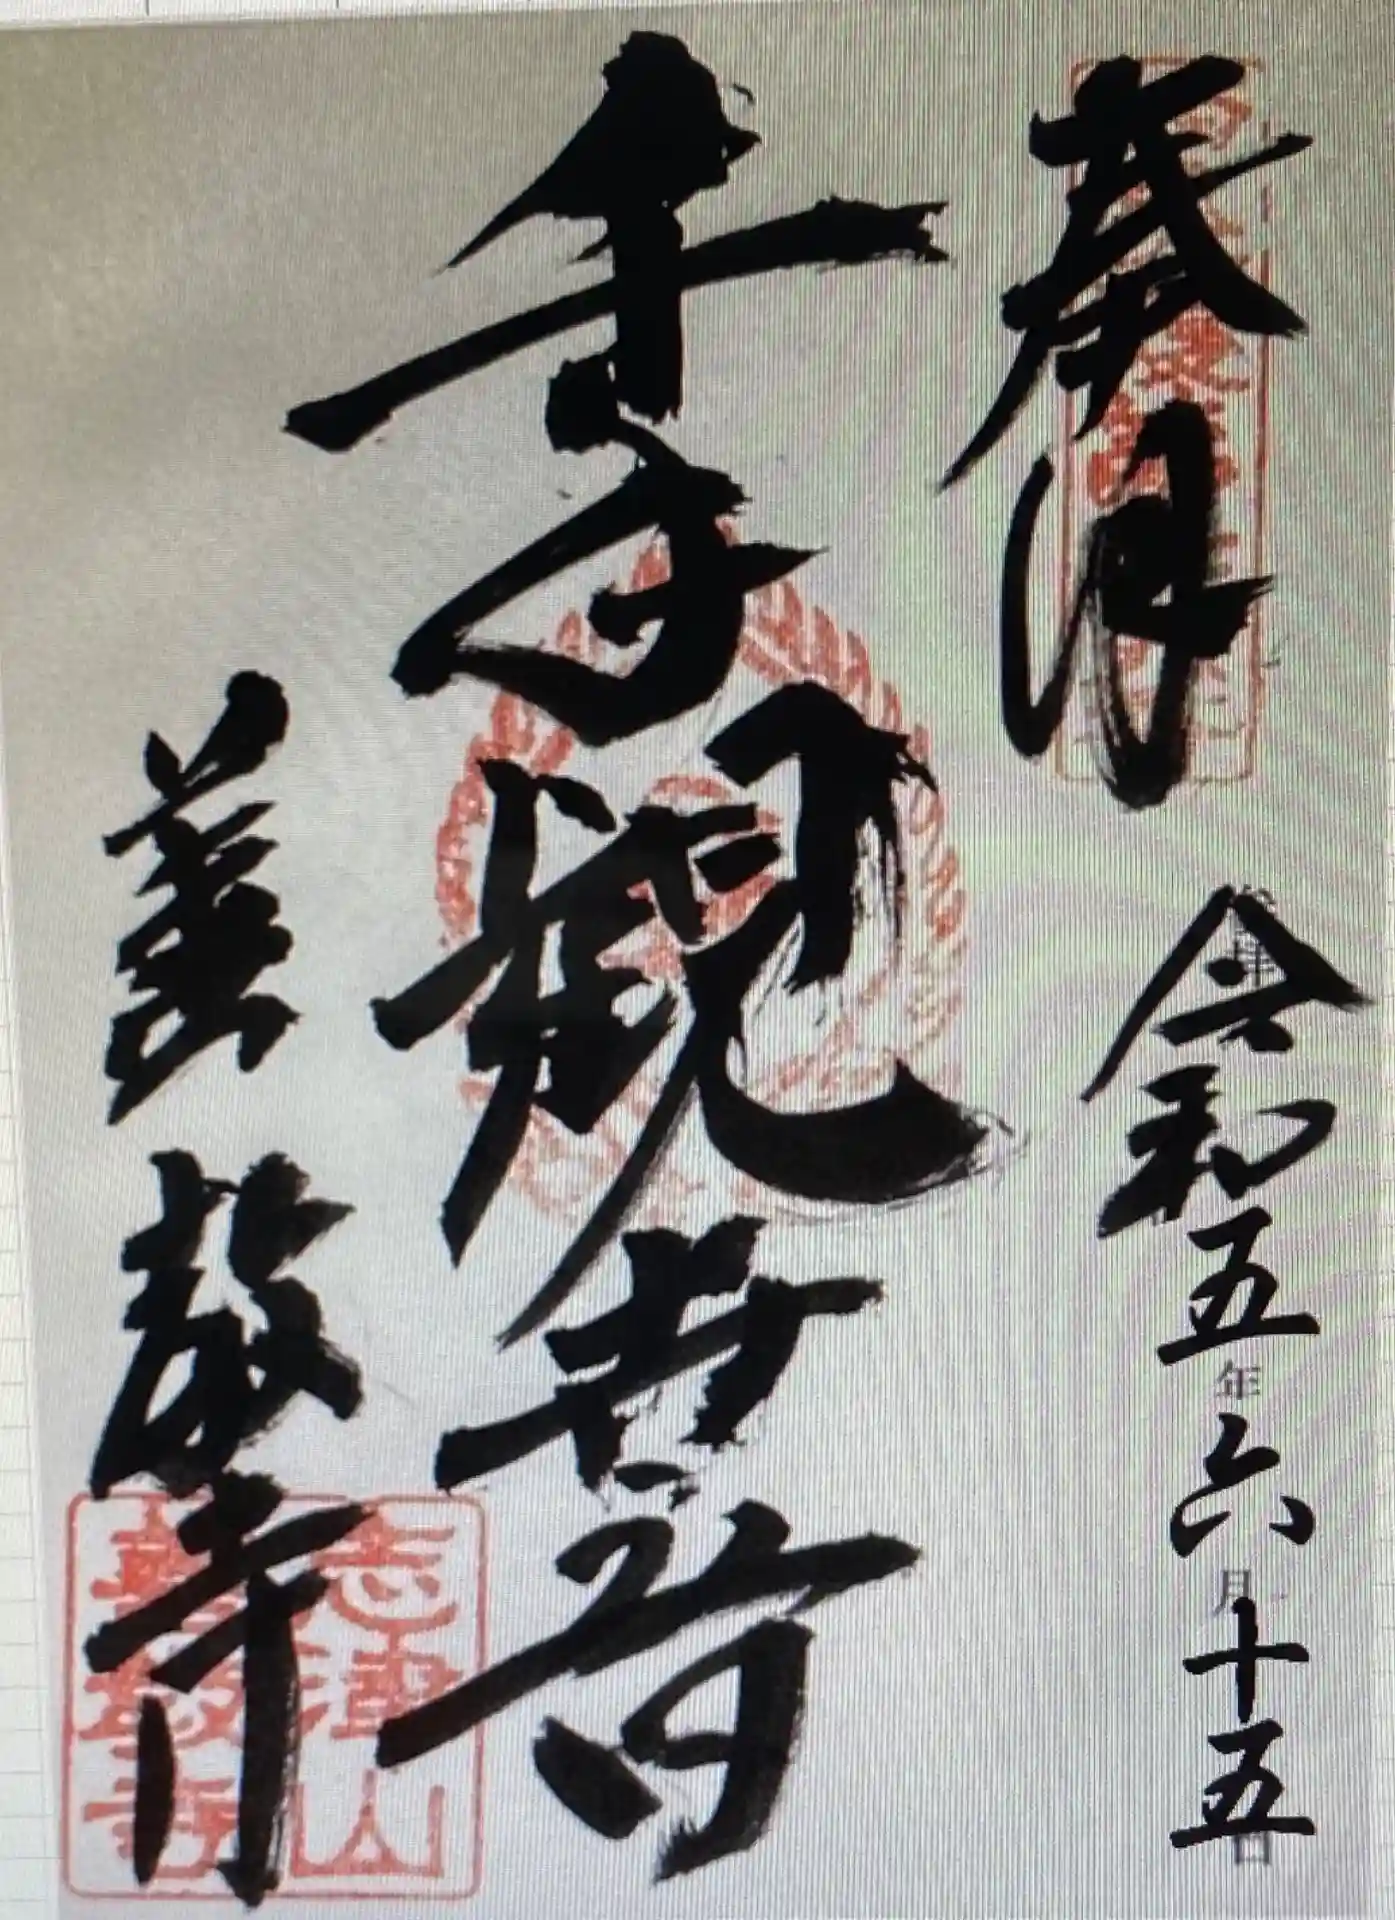 奉拝
令和五年六月十五日
千手観世音
善教寺
志津山
善教寺